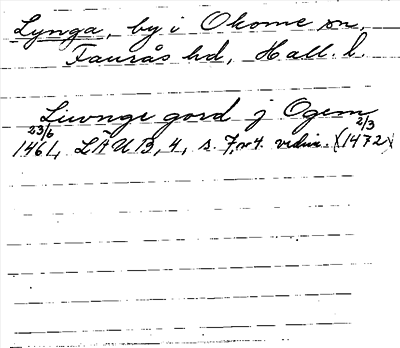 Lynga, by i Okome sn,
Faurås hd, Hall. l.
Liwnge gord j Ogem
23/6 2/3
1461, LÄUB, 4, s. 7, nr 4. vidim. (1472)